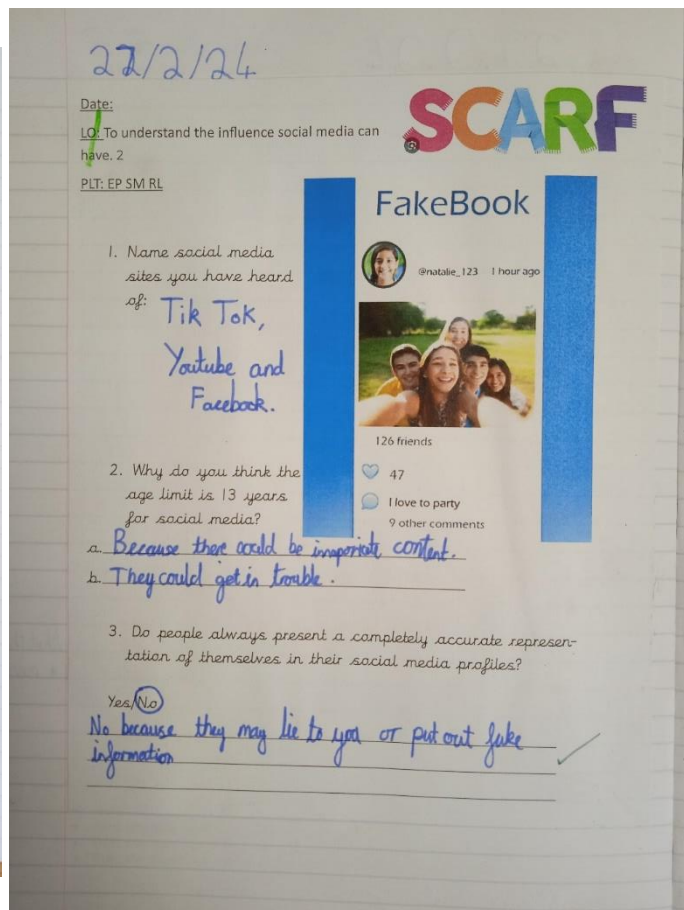 22/2/24
Date:
LO: To understand the influence social media can
have. 2
PLT: EP SM RL
SCARF
FakeBook
@natalie_123 1 hour ago
126 friends
47
I love to party
9 other comments
1. Name social media
sites you have heard
of:
Tik Tok,
Youtube and
Facebook.
2. Why do you think the
age limit is 13 years
for social media?
a. Because there could be innaporiate content.
b. They could get in trouble.
3. Do people always present a completely accurate represen-
tation of themselves in their social media profiles?
Yes/No
No because they may lie to you or put out fake
information